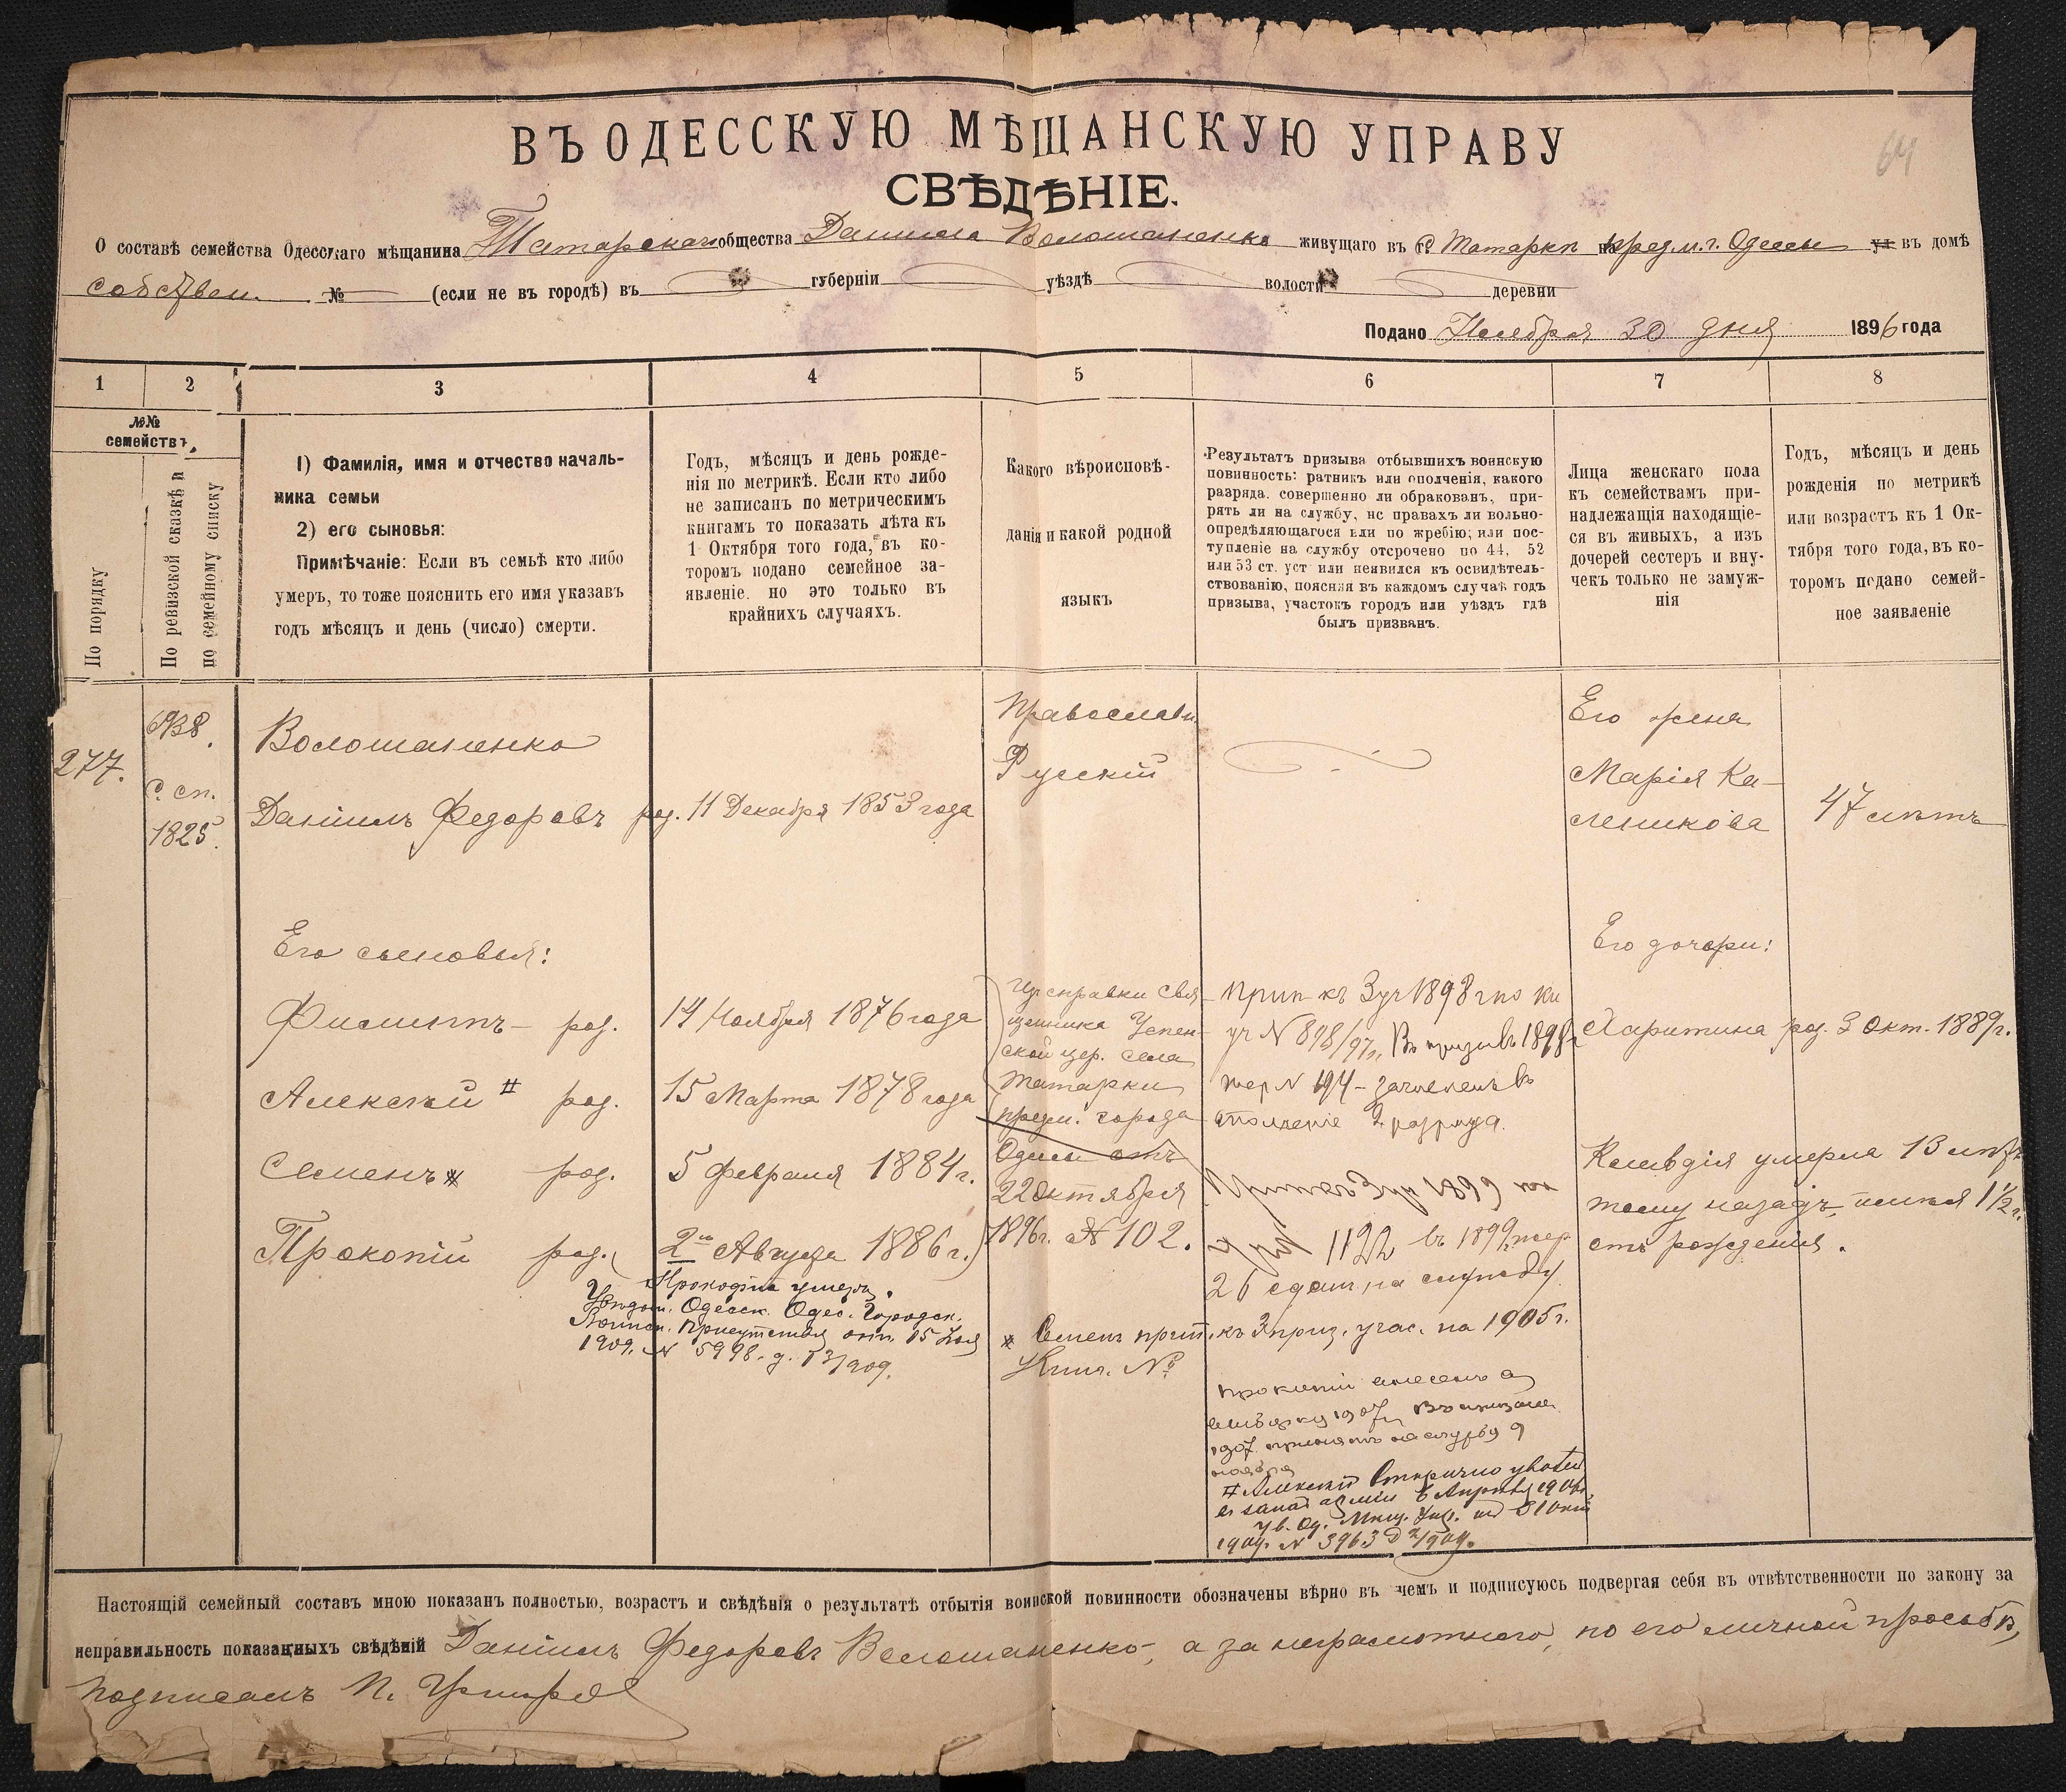 64
ВЪ ОДЕССКУЮ МѢЩАНСКУЮ УПРАВУ
СВѢДѢНІЕ.
О составѣ семейства Одесскаго мѣщанина Татарскаго общества Даниила Волошаненко живущаго въ с. Татарки пред.м.г. Одессы ул въ домѣ
собствен. № (если не въ городѣ) въ губерніи уѣздѣ волости деревни
Подано Ноября 30 дня 1896 года
1 2 3 4 5 6 7 8
№№ семействъ.
По порядку
По ревизской сказкѣ и
по семейному списку
1) Фамилія, имя и отчество началь-
ника семьи
2) его сыновья:
Примѣчаніе: Если въ семьѣ кто либо
умеръ, то тоже пояснить его имя указавъ
годъ мѣсяцъ и день (число) смерти.
Годъ, мѣсяцъ и день рожде-
нія по метрикѣ. Если кто либо
не записанъ по метрическимъ
книгамъ то показать лѣта къ
1 Октября того года, въ ко-
торомъ подано семейное за-
явленіе. но это только въ
крайнихъ случаяхъ.
Какого вѣроисповѣ-
данія и какой родной
языкъ
Результатъ призыва отбывшихъ воинскую
повинность: ратникъ или ополченія, какого
разряда. совершенно ли обракованъ, при-
рять ли на службу, нс правахъ ли вольно-
опредѣляющагося или по жребію; или пос-
тупленіе на службу отсрочено по 44, 52
или 53 ст. уст или неявился къ освидѣтель-
ствованію, поясняя въ каждомъ случаѣ годъ
призыва, участокъ городъ или уѣздъ гдѣ
былъ призванъ.
Лица женскаго пола
къ семействамъ при-
надлежащія находящіе-
ся въ живыхъ, а изъ
дочерей сестеръ и вну-
чекъ только не замуж-
нія
Годъ, мѣсяцъ и день
рожденія по метрикѣ
или возрастъ къ 1 Ок-
тября того года, въ ко-
торомъ подано семей-
ное заявленіе
277.
С. сп.
1825.
Волошаненко
Даніилъ Федоровъ род. 11 Декабря 1853 года
Православн.
Русскій
Его жена
Марія Ка-
леникова
47 лѣтъ
Его сыновья:
Филиппъ род. 14 Ноября 1876 года
Алексѣй # род. 15 Марта 1878 года
Семенъ род. 5 Февраля 1884 г.
Прокопій род. 2го Августа 1886 г.
Прокофій умеръ.
Увѣдом. Одесск. Одес. Городск.
Воинск. Присутствія отъ 15 Іюля
1909. N 5998. д. 13/909.
Изъ справки Свя-
щенника Успен-
ской цер. села
Татарки
предм. города
Одессы отъ
22 Октября
1896г. № 102.
Прип. къ 3 уч 1898 г по
уч N 898/97г. Въ призывъ 1898 г
жер N 194 - зачисленъ въ
ополченіе 2 разряда.
3 уч 1899
1122 въ 1899 г. жер
26 сданъ на службу
Семенъ прип. къ 3 приз. учас. на 1905 г.
№
Прокопій внесенъ
1907 г. Въ призывъ
1907 принятъ на службу 9
ноября
# Алексѣй
в запас арміи 6 Апрѣля 1904
ув. Од. Мѣщ. Упр.
1904. N 3963
Его дочери:
Харитина род. 3 Окт. 1889 г.
Клавдія умерла 13 лѣтъ
тому назадъ, имѣя 1½ г.
отъ рожденія.
Настоящій семейный составъ мною показанъ полностью, возрастъ и свѣдѣнія о результатѣ отбытія воинской повинности обозначены вѣрно въ чемъ и подписуюсь подвергая себя въ отвѣтственности по закону за
неправильность показанныхъ свѣдѣній Даніилъ Федоровъ Волошаненко, а за неграмотного, по его личной просьбѣ,
подписалъ П.